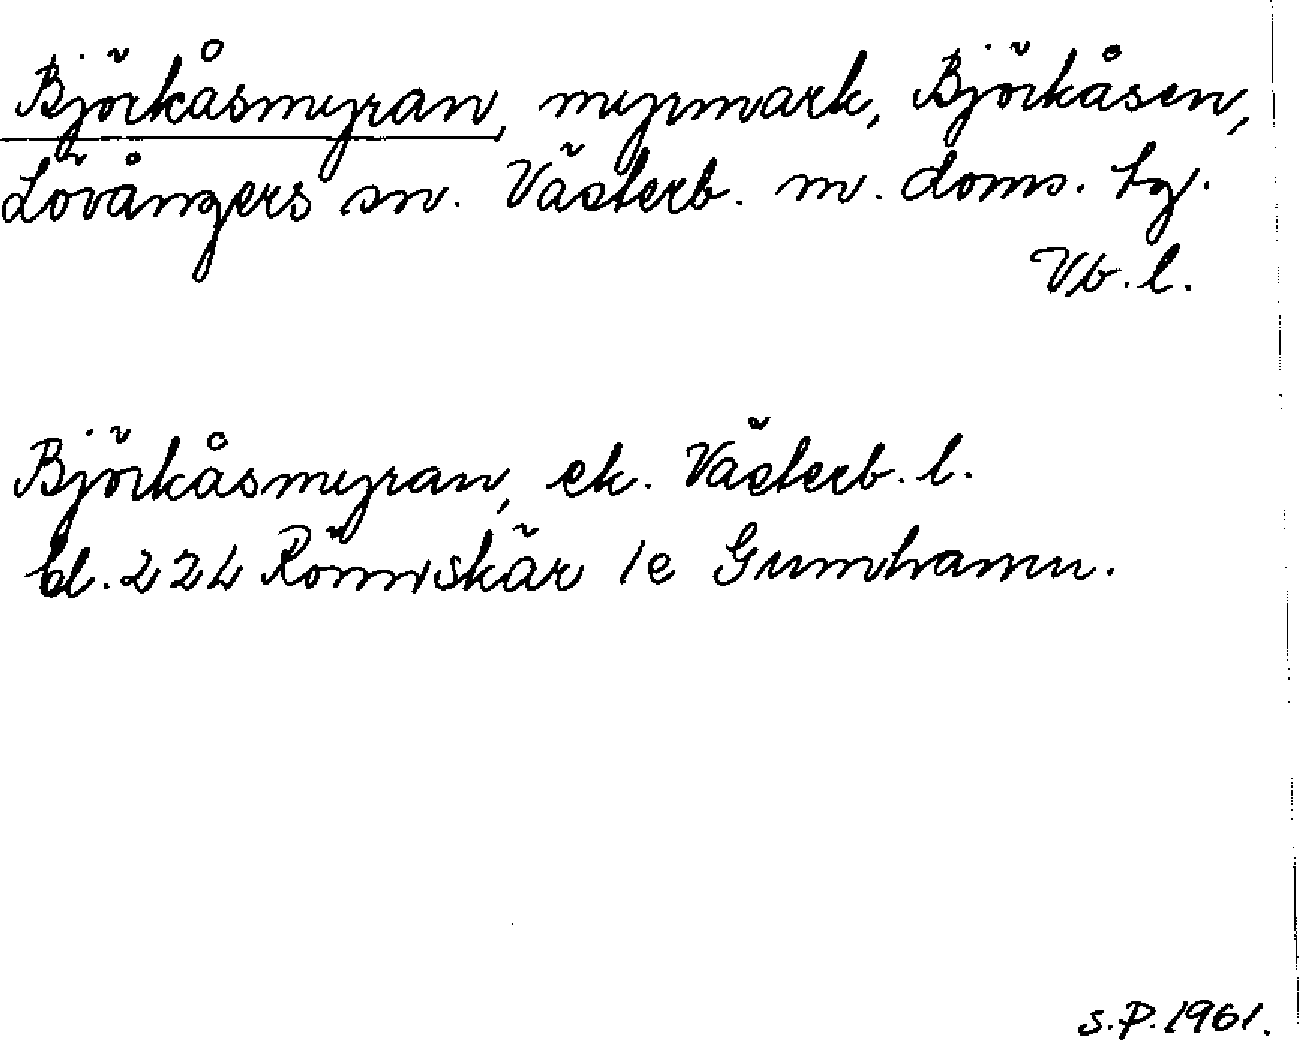 Björkåsmyran, myrmark, Björkåsen,
Lövångers sn. Västerb. m. doms. tg.
Vb. l.
Björkåsmyran, ek. Västerb. l.
bl. 224 Rönnskär 1e Gumhamn.
S.P. 1961.